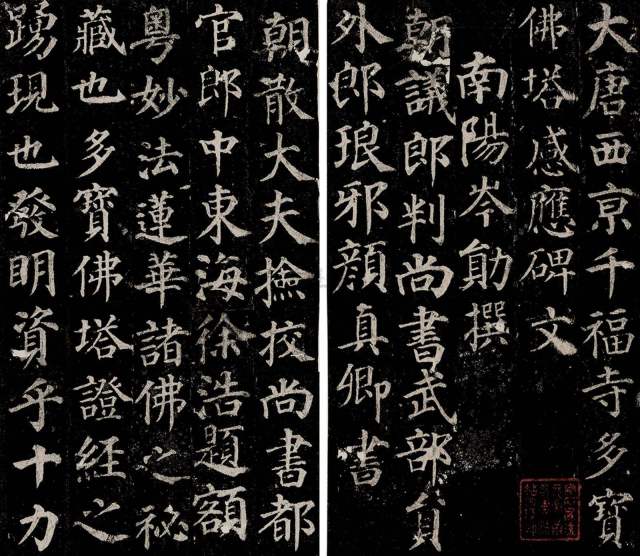 大唐西京千福寺多寶
佛塔感應碑文
南陽岑勛撰
朝議郎判尚書武部員
外郎琅邪顏真卿書
朝散大夫撿挍尚書都
官郎中東海徐浩題額
粵妙法蓮華諸佛之祕
藏也多寶佛塔證經之
踴現也發明資乎十力